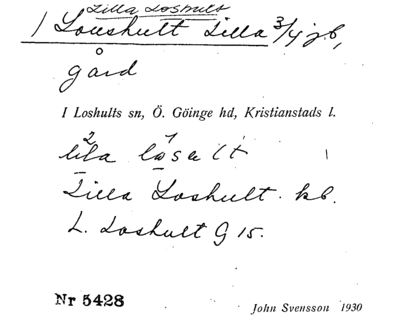 Lilla Loshult
1 Loushult Lilla 3/4 jb,
gård
I Loshults sn, Ö. Göinge hd, Kristianstads l.
lila
Lilla Loshult. kb.
L. Loshult G 15.
Nr 5428
John Svensson 1930